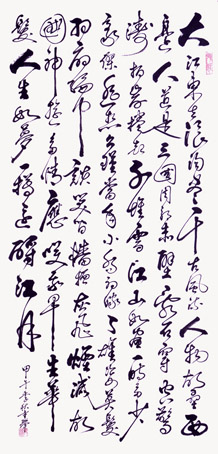 大江東去浪淘盡千古風流人物故壘西
邊人道是三國周郎赤壁亂石穿空驚
濤拍岸捲起千堆雪江山如畫一時多少
豪傑遙想公瑾當年小喬初嫁了雄姿英發
羽扇綸巾談笑間檣櫓灰飛煙滅故
國神遊多情應笑我早生華
髮人生如夢一樽還酹江月
甲午